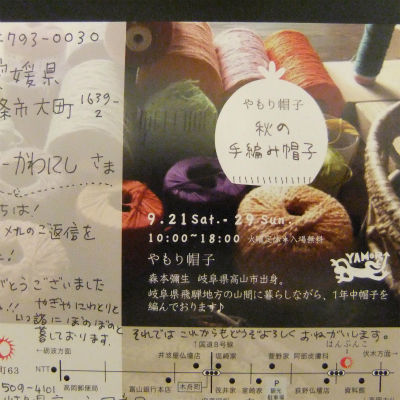 793-0030
媛県
条市大町 1639-2
かわにし さま
ちは!
ご返信を
がとうございました
やぎやにわとりと
いっ諸にほのぼのと
暮しております。
やもり帽子
秋の
手編み帽子
9.21Sat.- 29 Sun.
10:00~18:00 火曜定休*入場無料
やもり帽子
森本彌生 岐阜県高山市出身。
岐阜県飛騨地方の山間に暮らしながら、1年中帽子を
編んでおります♪
YAMORI
それでは これからもどうぞよろしく おねがいします。
はんぶんこ
←砺波方面
1国道8号線
伏木方面→
町63
NTT
井波屋仏壇店
塩崎家
菅野家
阿部皮膚科
高岡郵便局
富山銀行本店
木舟町
筏井家
室崎家
P
観光駐車場
荻野仏壇店
資料館
509-4101